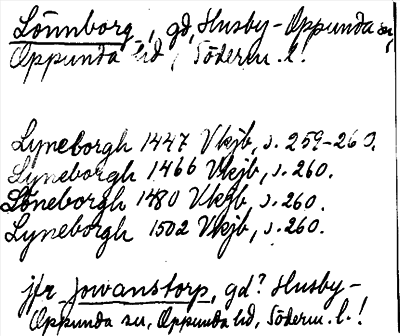 Lönnborg, gd, Husby-Oppunda sn,
Oppunda hd, Söderm. l.!
Lyneborgh 1447 Vkjb, s. 259-260.
Lyneborgh 1466 Vkjb, s. 260.
Löneborgh 1480 Vkjb, s. 260.
Lyneborgh 1502 Vkjb, s. 260.
jfr Jowanstorp, gd? Husby-
Oppunda sn, Oppunda hd, Söderm. l.!